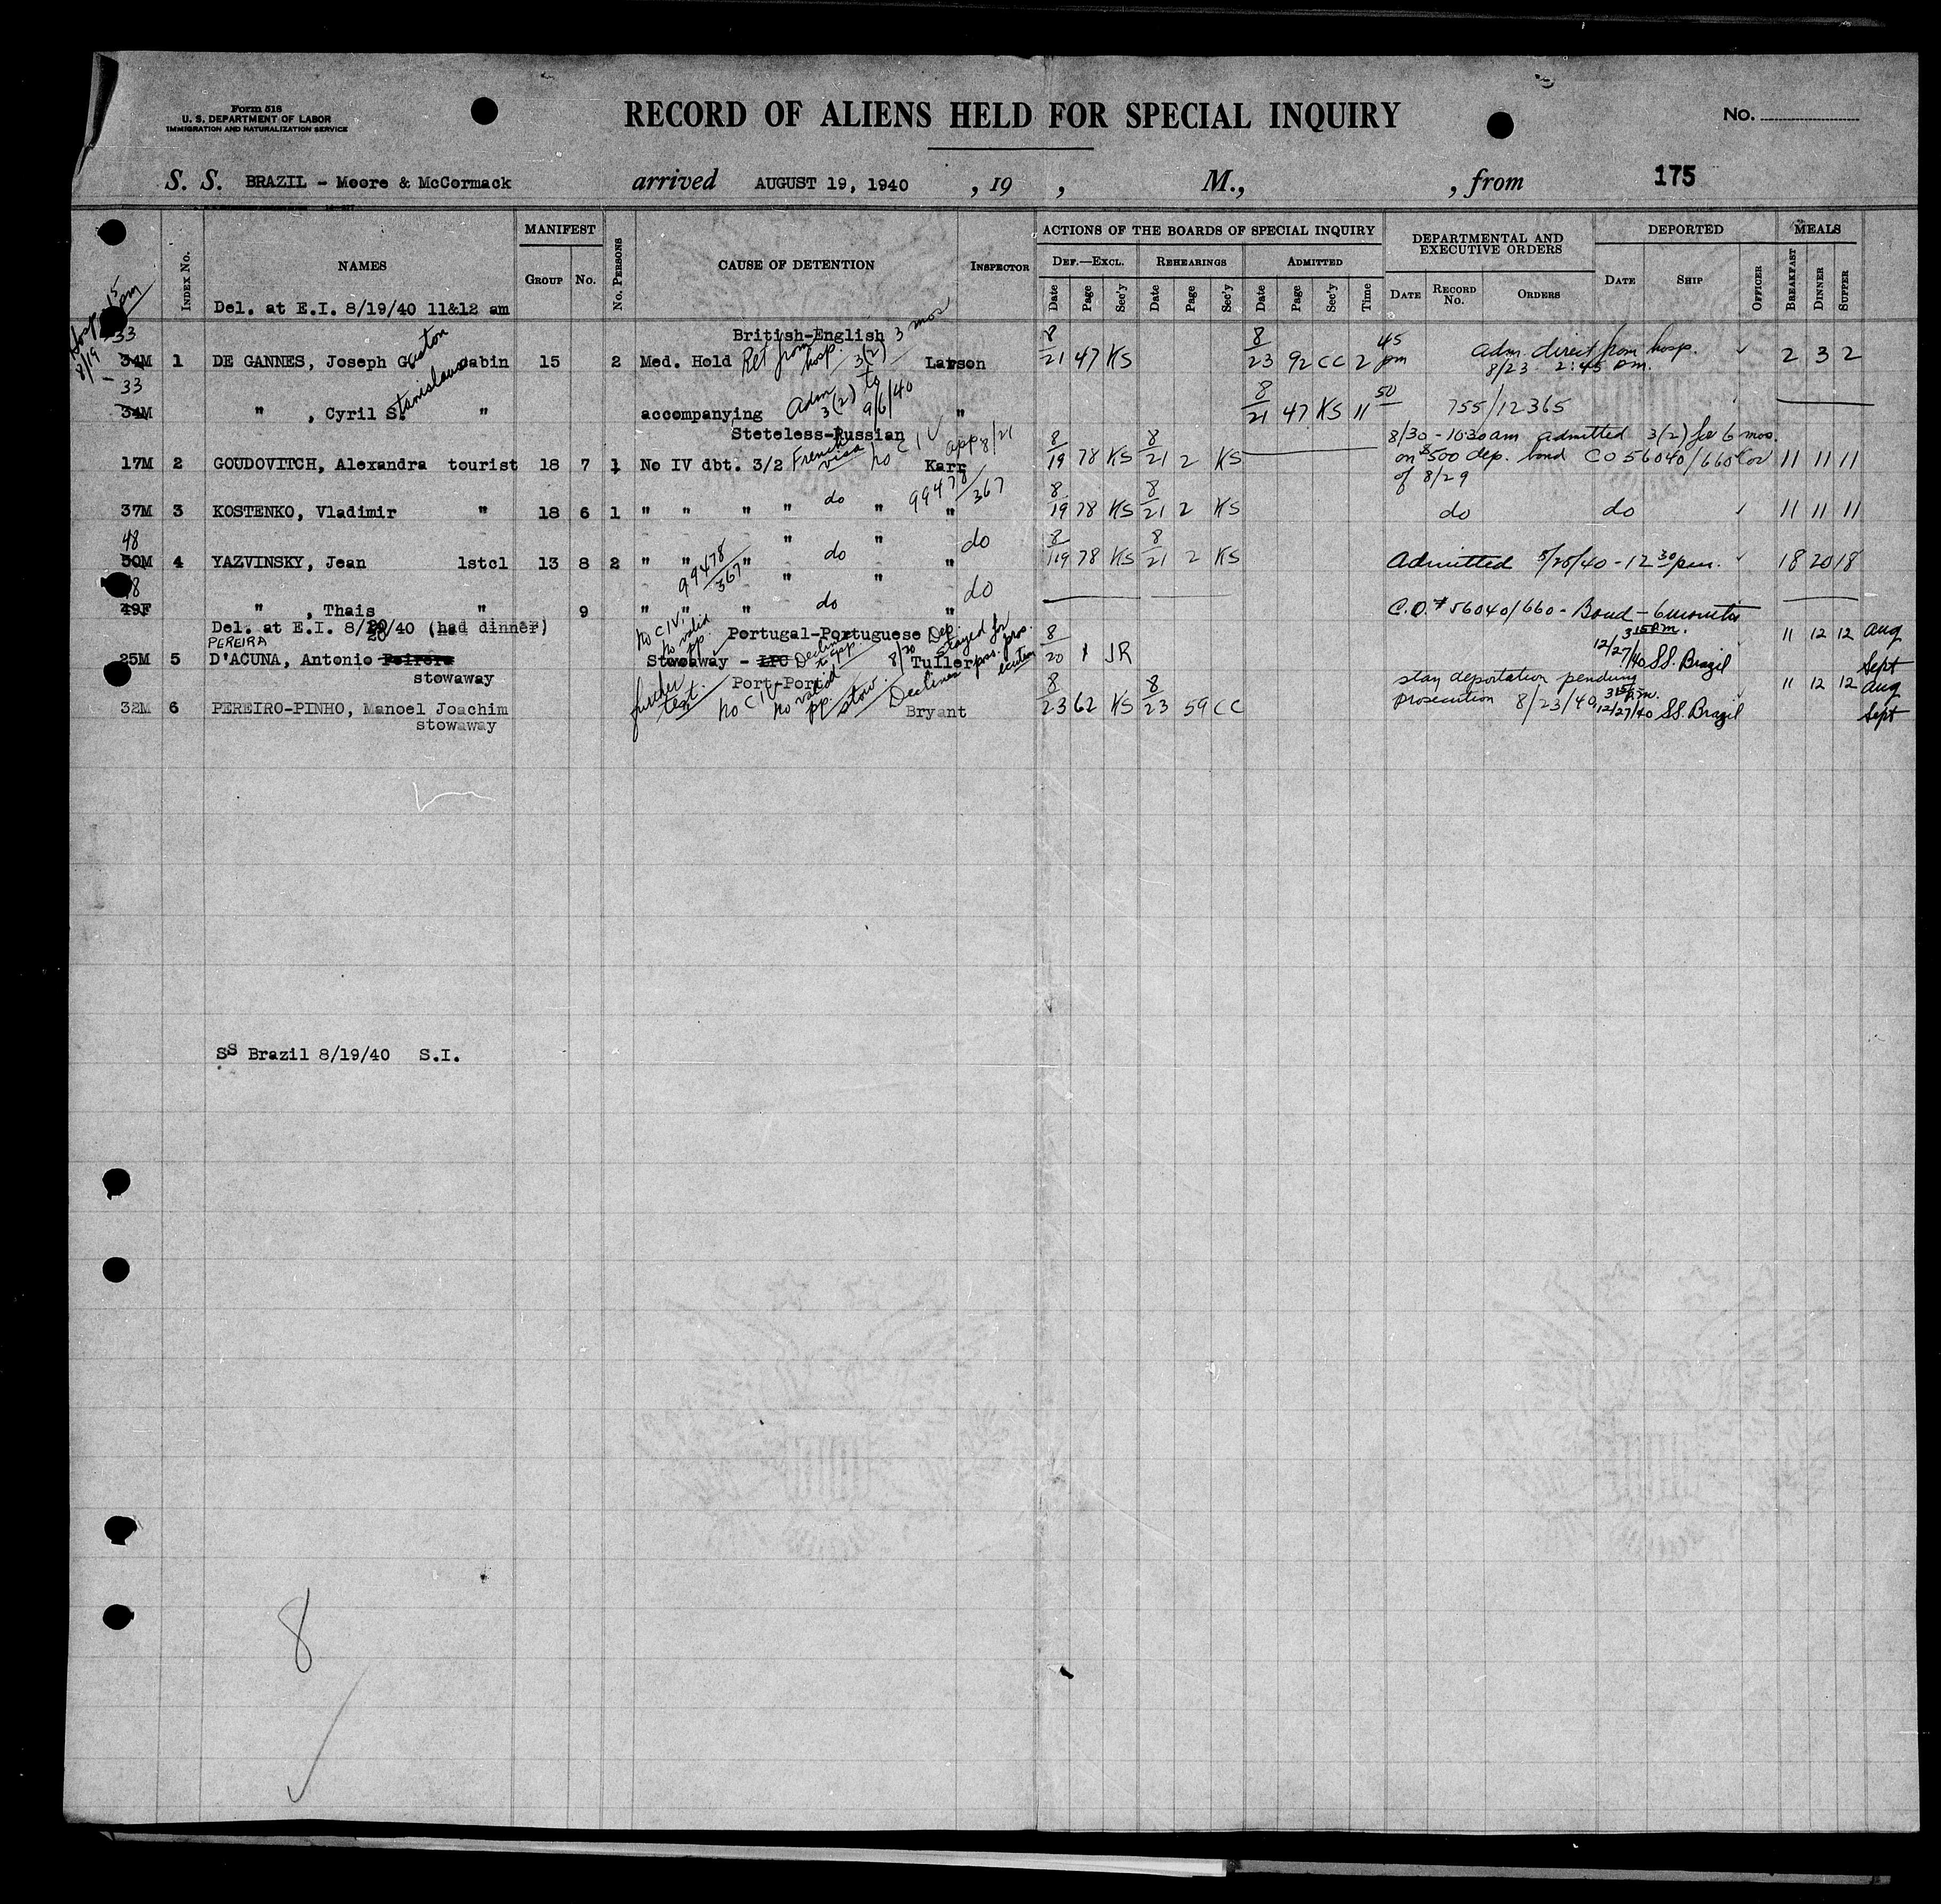 Form 518
U. S. DEPARTMENT OF LABOR
IMMIGRATION AND NATURALIZATION SERVICE
RECORD OF ALIENS HELD FOR SPECIAL INQUIRY
No.
S. S. BRAZIL - Moore & McCormack arrived AUGUST 19, 1940 , 19 , M., , from 175
Index No. NAMES MANIFEST GROUP No. No. PERSONS CAUSE OF DETENTION INSPECTOR
ACTIONS OF THE BOARDS OF SPECIAL INQUIRY
DEF.—EXCL. REHEARINGS ADMITTED
Date Page Sec'y Date Page Sec'y Date Page Sec'y Time
DEPARTMENTAL AND EXECUTIVE ORDERS
DATE RECORD No. ORDERS
DEPORTED
DATE SHIP OFFICER
MEALS
BREAKFAST DINNER SUPPER
Del. at E.I. 8/19/40 11&12 am
Hosp 8/19 15 pm
British-English 3 mos
33 34M 1 DE GANNES, Joseph Gaston cabin 15 2 Med. Hold Ret from hosp. 3(2) Larson 8/21 47 KS 8/23 92 CC 2 45 pm Adm. direct from hosp. 8/23 2:45 pm. 2 3 2
33 34M " , Cyril Stanislaus " accompanying Adm 3(2) to 9/6/40 " 8/21 47 KS 11 50 755/12365
Steteless-Russian
17M 2 GOUDOVITCH, Alexandra tourist 18 7 1 No IV dbt. 3/2 French visa no C IV app 8/21 Karr 8/19 78 KS 8/21 2 KS 8/30 - 10:30 am admitted 3(2) for 6 mos. on $500 dep. bond CO 56040/660 of 8/29 11 11 11
37M 3 KOSTENKO, Vladimir " 18 6 1 " " " " do " 99478/367 " 8/19 78 KS 8/21 2 KS do do 11 11 11
48 50M 4 YAZVINSKY, Jean 1stcl 13 8 2 " " 99478/367 " " do " do " 8/19 78 KS 8/21 2 KS Admitted 12 30 pm. 18 20 18
48 49F " , Thais " 9 " " " " do " do " C.O. # 56040/660 - Bond - 6 months
Del. at E.I. 8/20/40 (had dinner)
Portugal-Portuguese
25M 5 D'ACUNA, Antonio PEREIRA Peirera stowaway no C IV. no valid pp. Stowaway - LPC Declines to app. 8/20 Tuller Dep. stayed for prosecution 8/20 1 JR 3 15 P.M. 12/27/40 SS. Brazil 11 12 12 Aug Sept
Port-Port
32M 6 PEREIRO-PINHO, Manoel Joachim stowaway further test. no C IV no valid pp. stow. Declines Bryant 8/23 62 KS 8/23 59 CC stay deportation pending prosecution 8/23/40 3 15 P.M. 12/27/40 SS. Brazil 11 12 12 Aug Sept
SS Brazil 8/19/40 S.I.
8